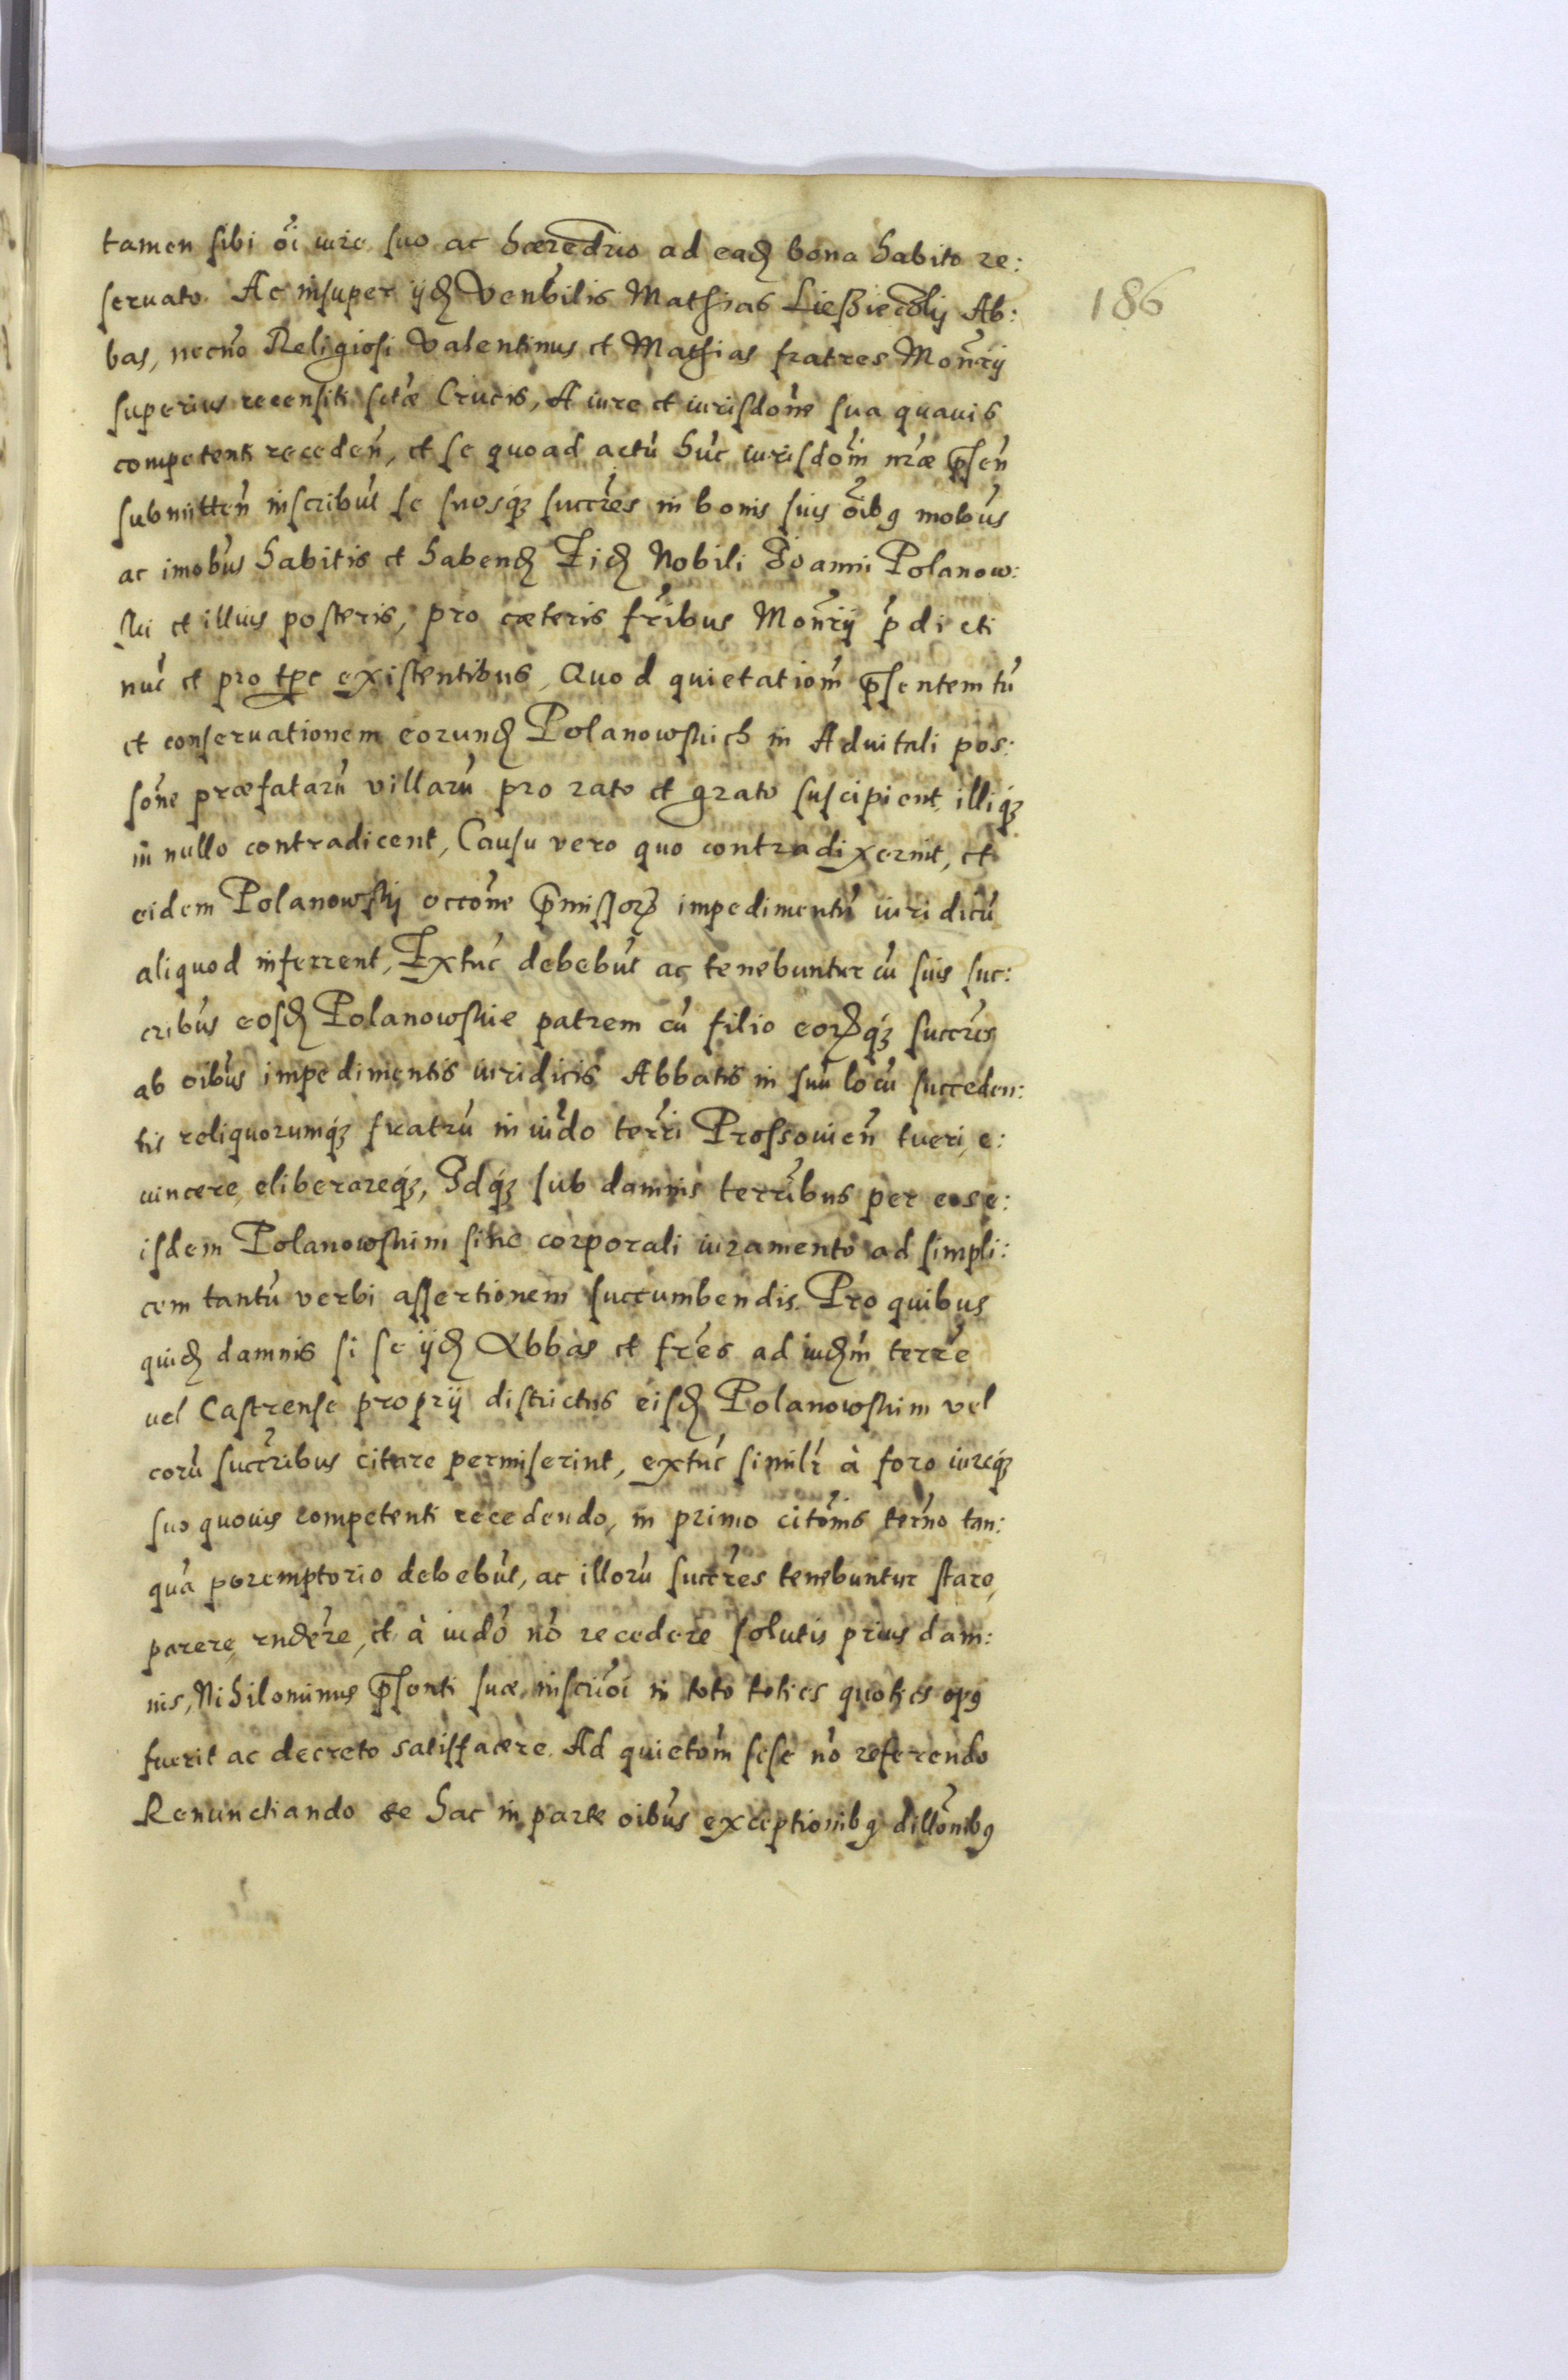 tamen sibi o͠i iure suo ac hæredrio ad eadē bona habito re:
seruato. Ac insuper ijdē Ven͠bilis Mathias Liessiecky Ab:
bas, necn͠o Religiosi Valentinus et Mathias fratres Mon͠rij
superius recensiti sctæ Crucis, A iure et iurisdo͠ne sua quauis
competenti receden͠, et se quoad actu͠ hu͠c iurisdo͠ni n͠ræ p͠sen͠
submitten͠ inscribu͠t se suosq; succ͠res in bonis suis o͠ibꝫ mob͠us
ac imob͠us habitis et habendē Eidē Nobili Joanni Polanow:
ski et illius posteris, pro cæteris fr͠ibus Mon͠rij p͠dicti
nu͠c et pro tp͠e existentibus, Quod quietatio͠m p͠sentem tu͠
et conseruationem eorundē Polanowskich in Aduitali pos:
so͠ne præfataru͠ villaru͠ pro rato et grato suscipient, illiq;
in nullo contradicent, Causu vero quo contradixerint, et
eidem Polanowskij occo͠ne p͠missorꝝ impedimentu͠ iuridicu͠
aliquod inferrent, Extu͠c debebu͠t ac tenebuntur cu͠ suis suc:
crib͠us eosdē Polanowskie patrem cu͠ filio eorꝝq; succ͠res
ab oib͠us impedimentis iuridicis Abbatis in suu͠ locu͠ succeden:
tis reliquorumq; fratru͠ in iu͠do ter͠ri Prossouien͠ tueri, e:
uincere, eliberareq;, Idq; sub damnis terr͠ibus per eos e:
isdem Polanowskim sine corporali iuramento ad simpli:
cem tantu͠ verbi assertionem succumbendis. Pro quibus
quidē damnis si se ijdē Abbas et fr͠es ad iud͠m terr͠e
uel Castrense proprij districtus eisdē Polanowskim vel
eoru͠ succ͠ribus citare permiserint, extu͠c simil͠r à foro iureq;
suo quouis competenti recedendo, in primo cito͠nis ter͠no tan:
qua͠ peremptorio debebu͠t, ac illoru͠ succ͠res tenebuntur stare,
parere, rnd͠ere, et à iudo͠ no͠ recedere solutis prius dam:
nis, Nihilominus p͠senti suæ inscrio͠i in toto toties quoties opꝫ
fuerit ac decreto satisfacere. Ad quieto͠m sese no͠ referendo
Renunctiando se hac in parte oib͠us exceptionibꝫ dillo͠nibꝫ
186